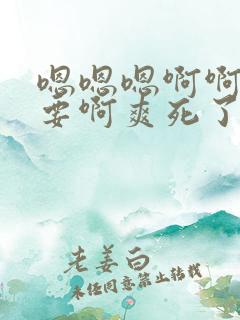 嗯嗯嗯啊啊
要啊爽死了
老姜白
未经同意禁止转载